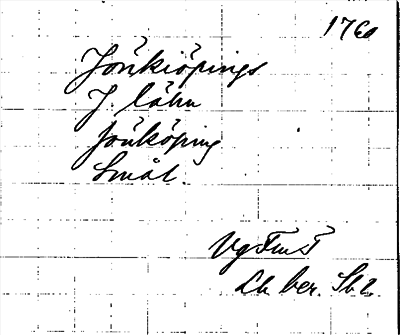 1760
Jönkiöpings
J. lähn
Jönköping
Smål.
Vg Fms T
Lh ber. Sbl.